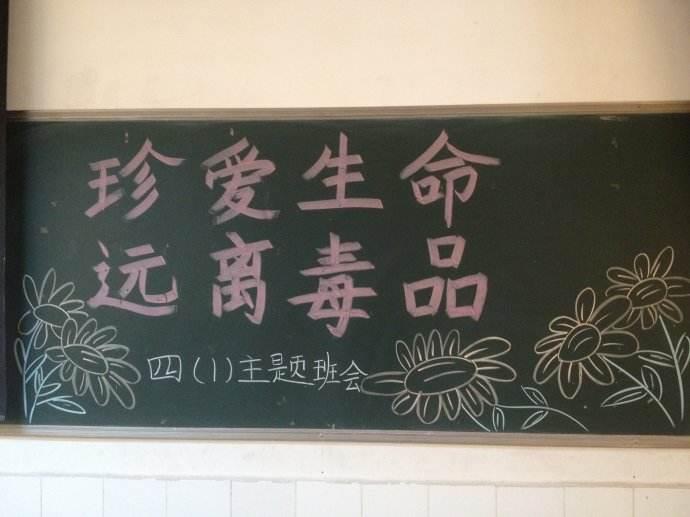 珍爱生命
远离毒品
四(1)主题班会